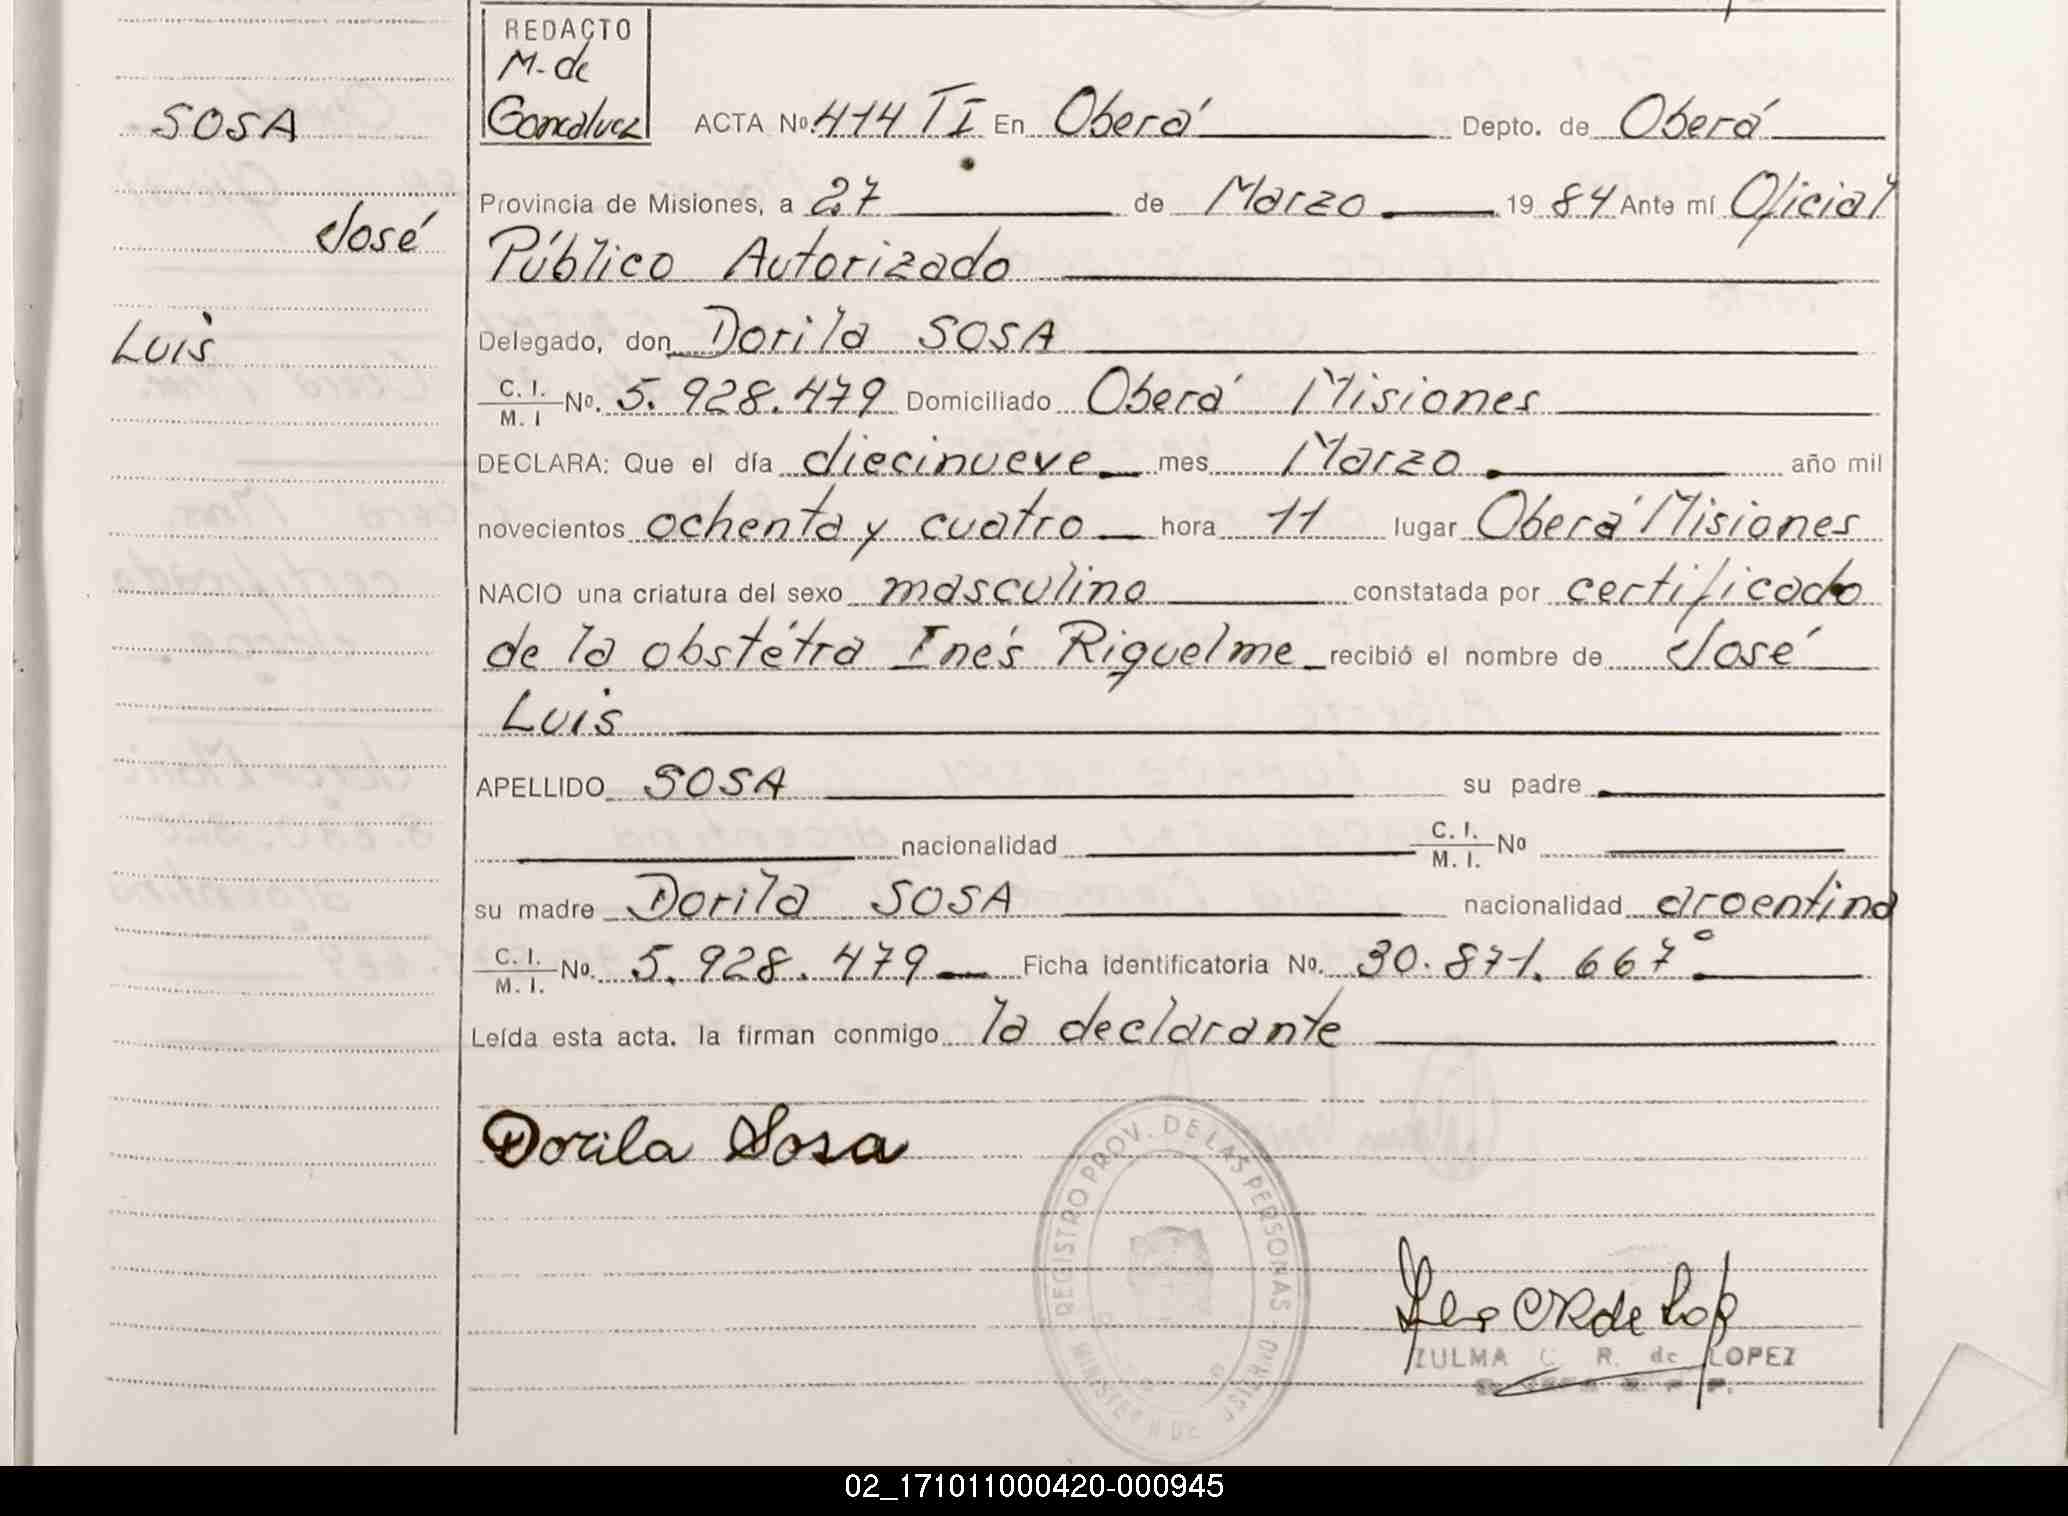 REDACTO
M. de
Goncalvez
SOSA
José
Luis
ACTA Nº 414 TI En Oberá Depto. de Oberá
Provincia de Misiones, a 27 de Marzo 1984 Ante mí Oficial
Público Autorizado
Delegado, don Dorila SOSA
C. I. / M. I Nº. 5.928.479 Domiciliado Oberá Misiones
DECLARA: Que el día diecinueve mes Marzo año mil
novecientos ochenta y cuatro hora 11 lugar Oberá Misiones
NACIO una criatura del sexo masculino constatada por certificado
de la obstétra Inés Riquelme recibió el nombre de José
Luis
APELLIDO SOSA su padre
nacionalidad C. I. / M. I. Nº
su madre Dorila SOSA nacionalidad argentina
C. I. / M. I. Nº. 5.928.479 Ficha identificatoria Nº. 30.871.667
Leída esta acta. la firman conmigo la declarante
Dorila Sosa
REGISTRO PROV. DE LAS PERSONAS
ZULMA C. R. de LOPEZ
02_171011000420-000945